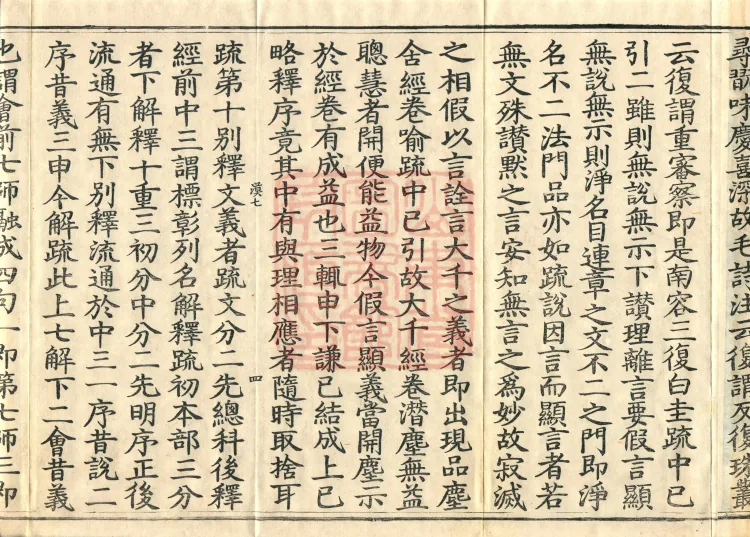 尋翫味慶喜深故毛詩注云復謂反復珠叢
云復謂重審察即是南容三復白圭疏中已
引二雖則無說無示下讃理離言要假言顯
無說無示則淨名目連章之文不二之門即淨
名不二法門品亦如疏說因言而顯言者若
無文殊讃默之言安知無言之為妙故寂滅
之相假以言詮言大千之義者即出現品塵
含經卷喻疏中已引故大千經卷潛塵無益
聰慧者開便能益物今假言顯義當開塵示
於經卷有成益也三輒申下謙已結成上已
略釋序竟其中有與理相應者隨時取捨耳
漢七
四
疏第十別釋文義者疏文分二先總科後釋
經前中三謂標彰列名解釋疏初本部三分
者下解釋十重三初分中分二先明序正後
流通有無下別釋流通於中三一序昔說二
序昔義三申今解疏此上七解下二會昔義
也謂會前七師融成四句一即第七師三即